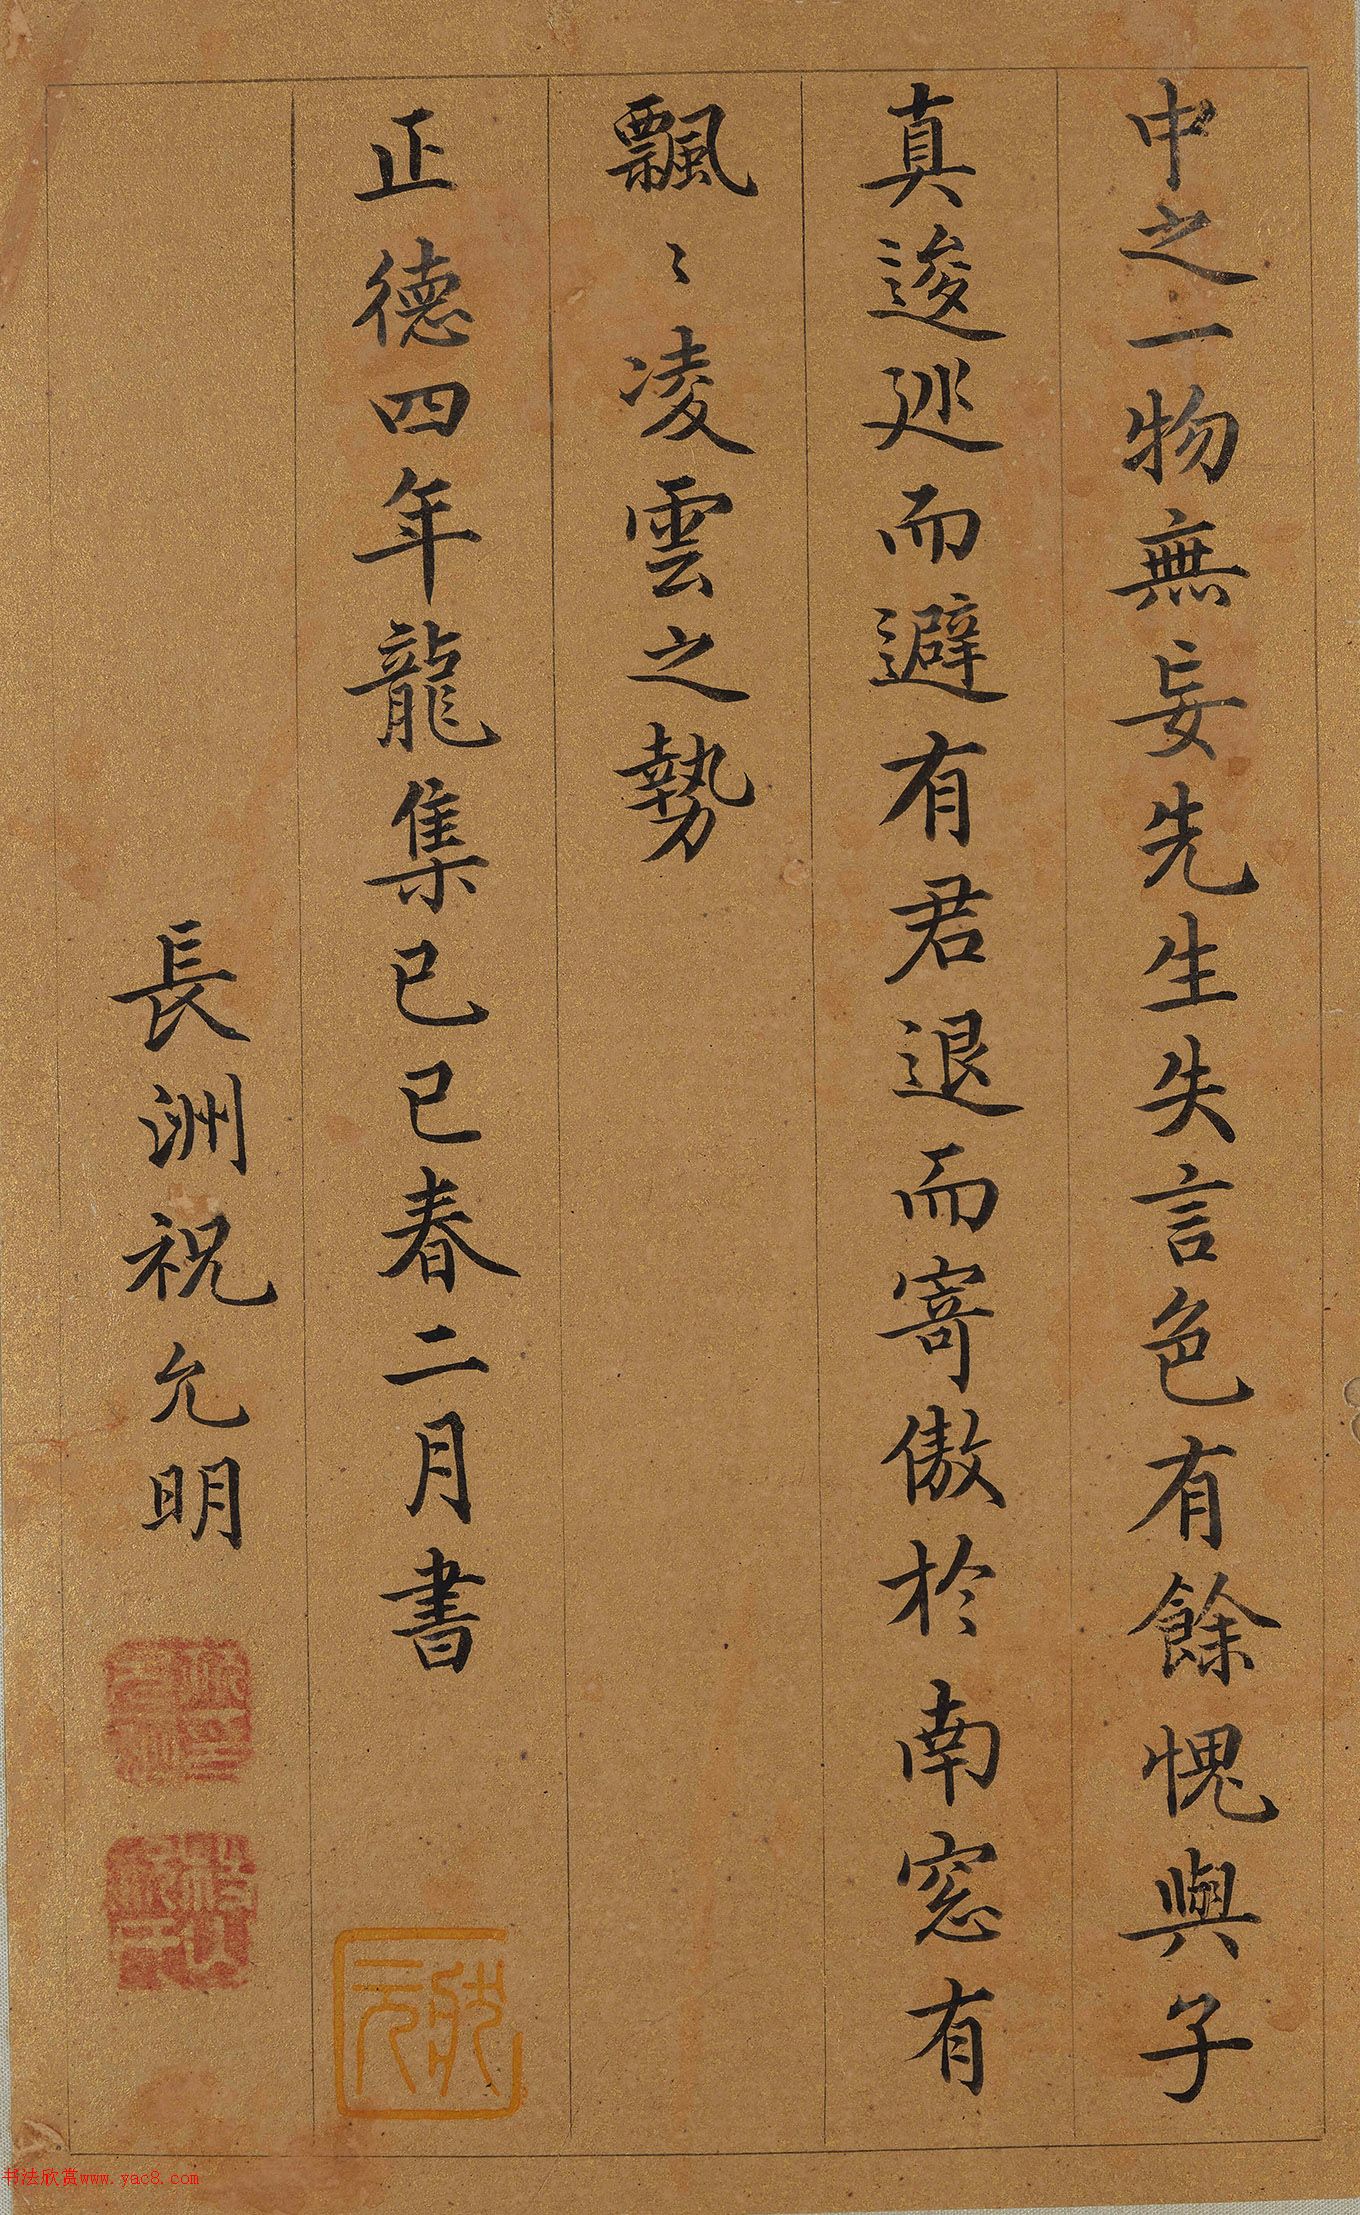 中之一物無妄先生失言色有餘愧與子
真逡廵而避有君退而寄傲於南窓有
飄〻凌雲之勢
正德四年龍集已巳春二月書
長洲祝允明
书法欣赏www.yac8.com